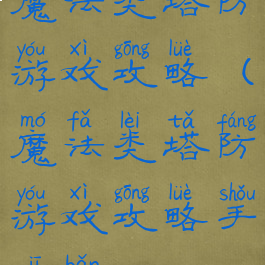 魔法类塔防
yóu xì gōng lüè
游戏攻略(
mó fǎ lèi tǎ fáng
魔法类塔防
yóu xì gōng lüè shǒu
游戏攻略手
jī bǎn